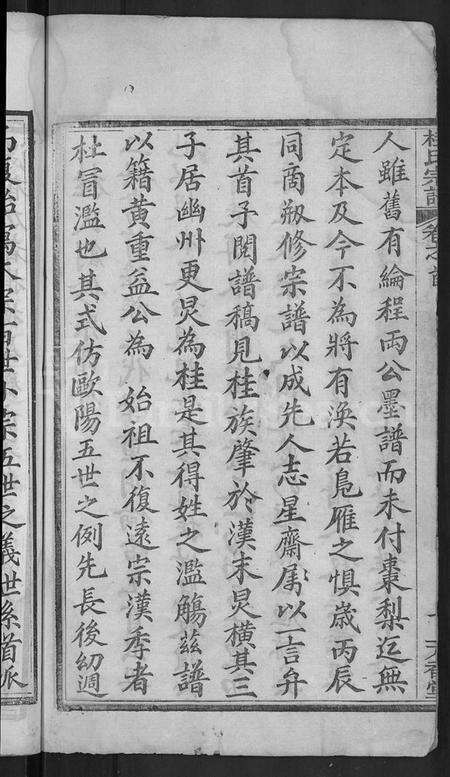 桂氏宗譜
卷之首
人雖舊有綸程兩公墨譜而未付棗梨迄無
定本及今不為將有渙若鳧雁之懼歲丙辰
同商刱修宗譜以成先人志星齋屬以一言弁
其首予閱譜稿見桂族肇於漢末炅橫其三
子居幽州更炅為桂是其得姓之濫觴茲譜
以籍黃重益公為 始祖不復遠宗漢季者
杜冒濫也其式仿歐陽五世之例先長後幼週
宗百世小宗五世之義世系首派